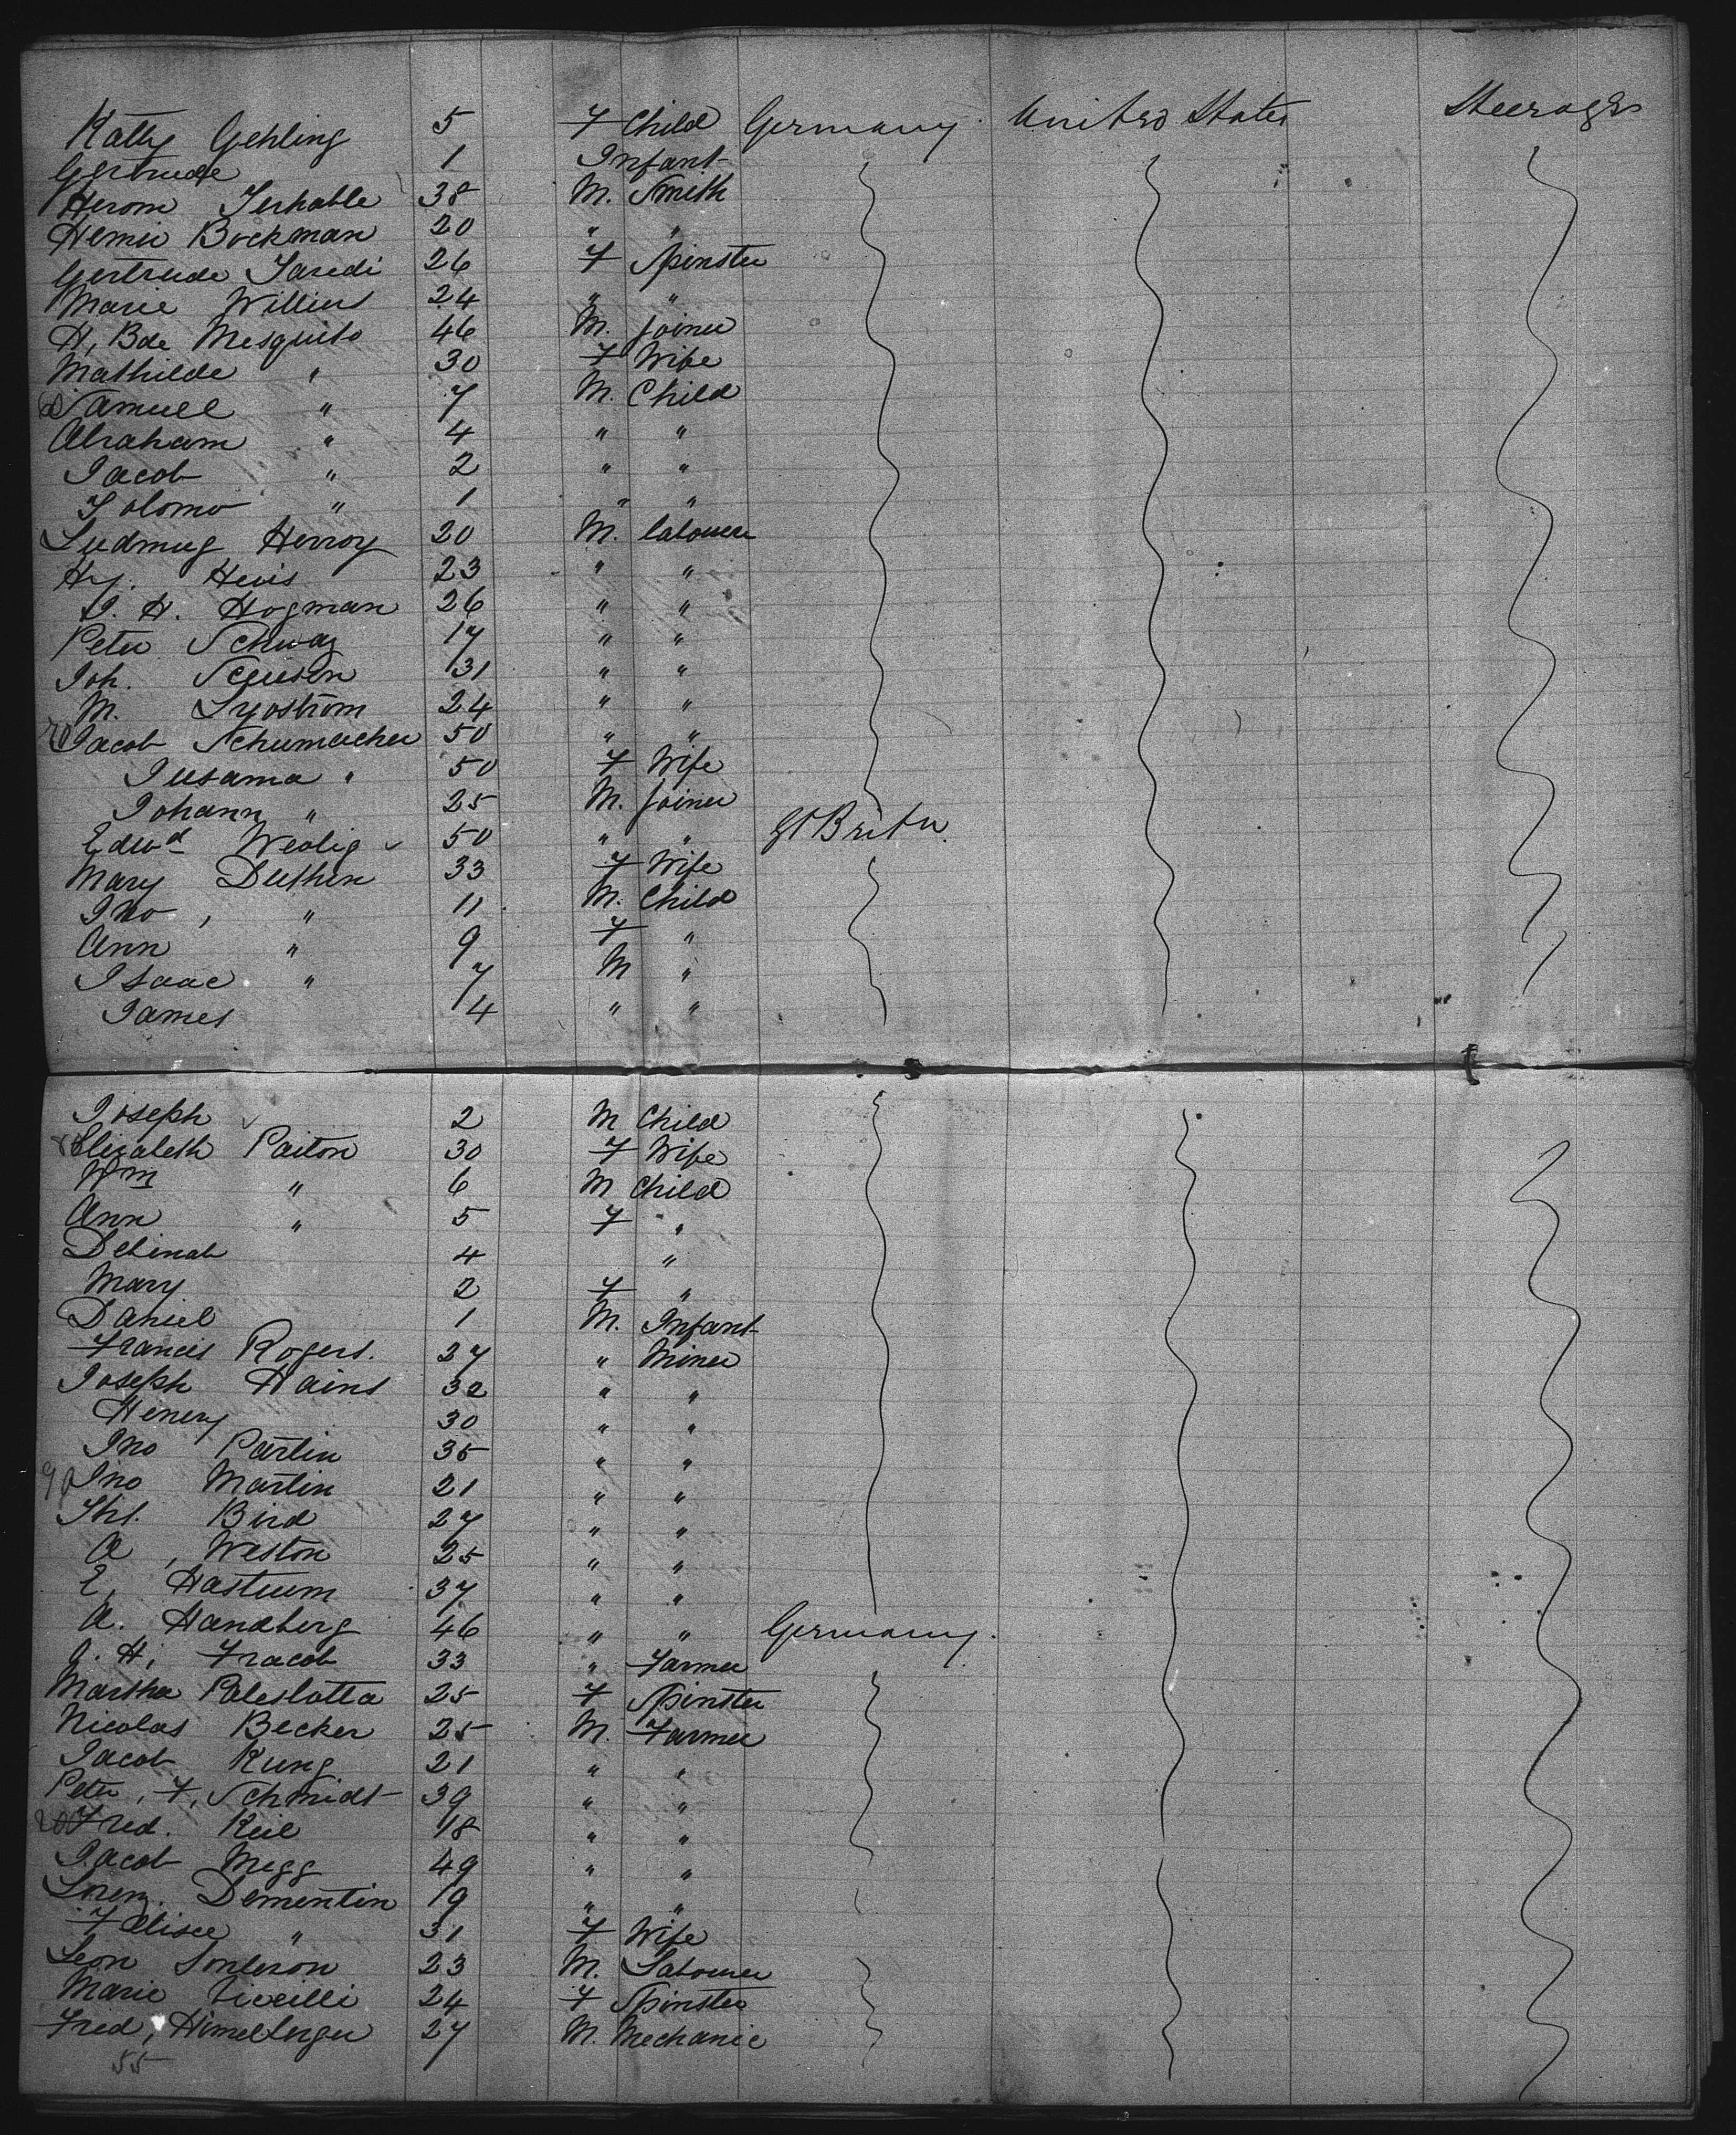 Katty Gehling 5 F Child Germany United States Steerage
Gertrude 1 Infant
Herom Terhable 38 M. Smith
Hemu Bockman 20 " "
Gertrude Jaredi 26 F Spinster
Marie Willies 24 " "
H, Bde Mesquito 46 M. Joiner
Mathilde " 30 F Wife
Samuel " 7 M. Child
Abraham " 4 " "
Jacob " 2 " "
Solomo " 1 " "
Ludmug Herroy 20 M. Labourer
Hy. Hevis 23 " "
J. H. Hogman 26 " "
Peter Schwaz 17 " "
Joh. 31 " "
M. Lyostrom 24 " "
Jacob Schumacher 50 " "
Susama " 50 F Wife
Johann " 25 M. Joiner
Edwd Weolig 50 " " Gt Britn
Mary Duthen 33 F Wife
Jno, " 11 M. Child
Ann " 9 F "
Isaac " 7 M "
James 4 " "
Joseph 2 M Child
Elizabeth Paiton 30 F Wife
Wm " 6 M Child
Ann " 5 F "
Debinah 4 "
Mary 2 F "
Daniel 1 M. Infant
Francis Rogers. 27 " Miner
Joseph Hains 32 " "
Henery 30 " "
Jno Partin 35 " "
90 Jno Martin 21 " "
Ths. Bird 27 " "
A, Weston 25 " "
E, Hastrum 37 " "
A. Handberg 46 " " Germany.
J. H, Fracob 33 " Farmer
Martha Poleslotta 25 F Spinster
Nicolas Becker 25 M. Farmer
Jacob Kung 21 " "
Peter, F, Schmidt 39 " "
Fred. Keil 18 " "
Jacob Megg 49 " "
Lorenz. Dementin 19 " "
Felisce " 31 F Wife
Leon Sonleron 23 M. Labourer
Marie Liveilli 24 F Spinster
Fred, Himelberger 27 M. Mechanic
55